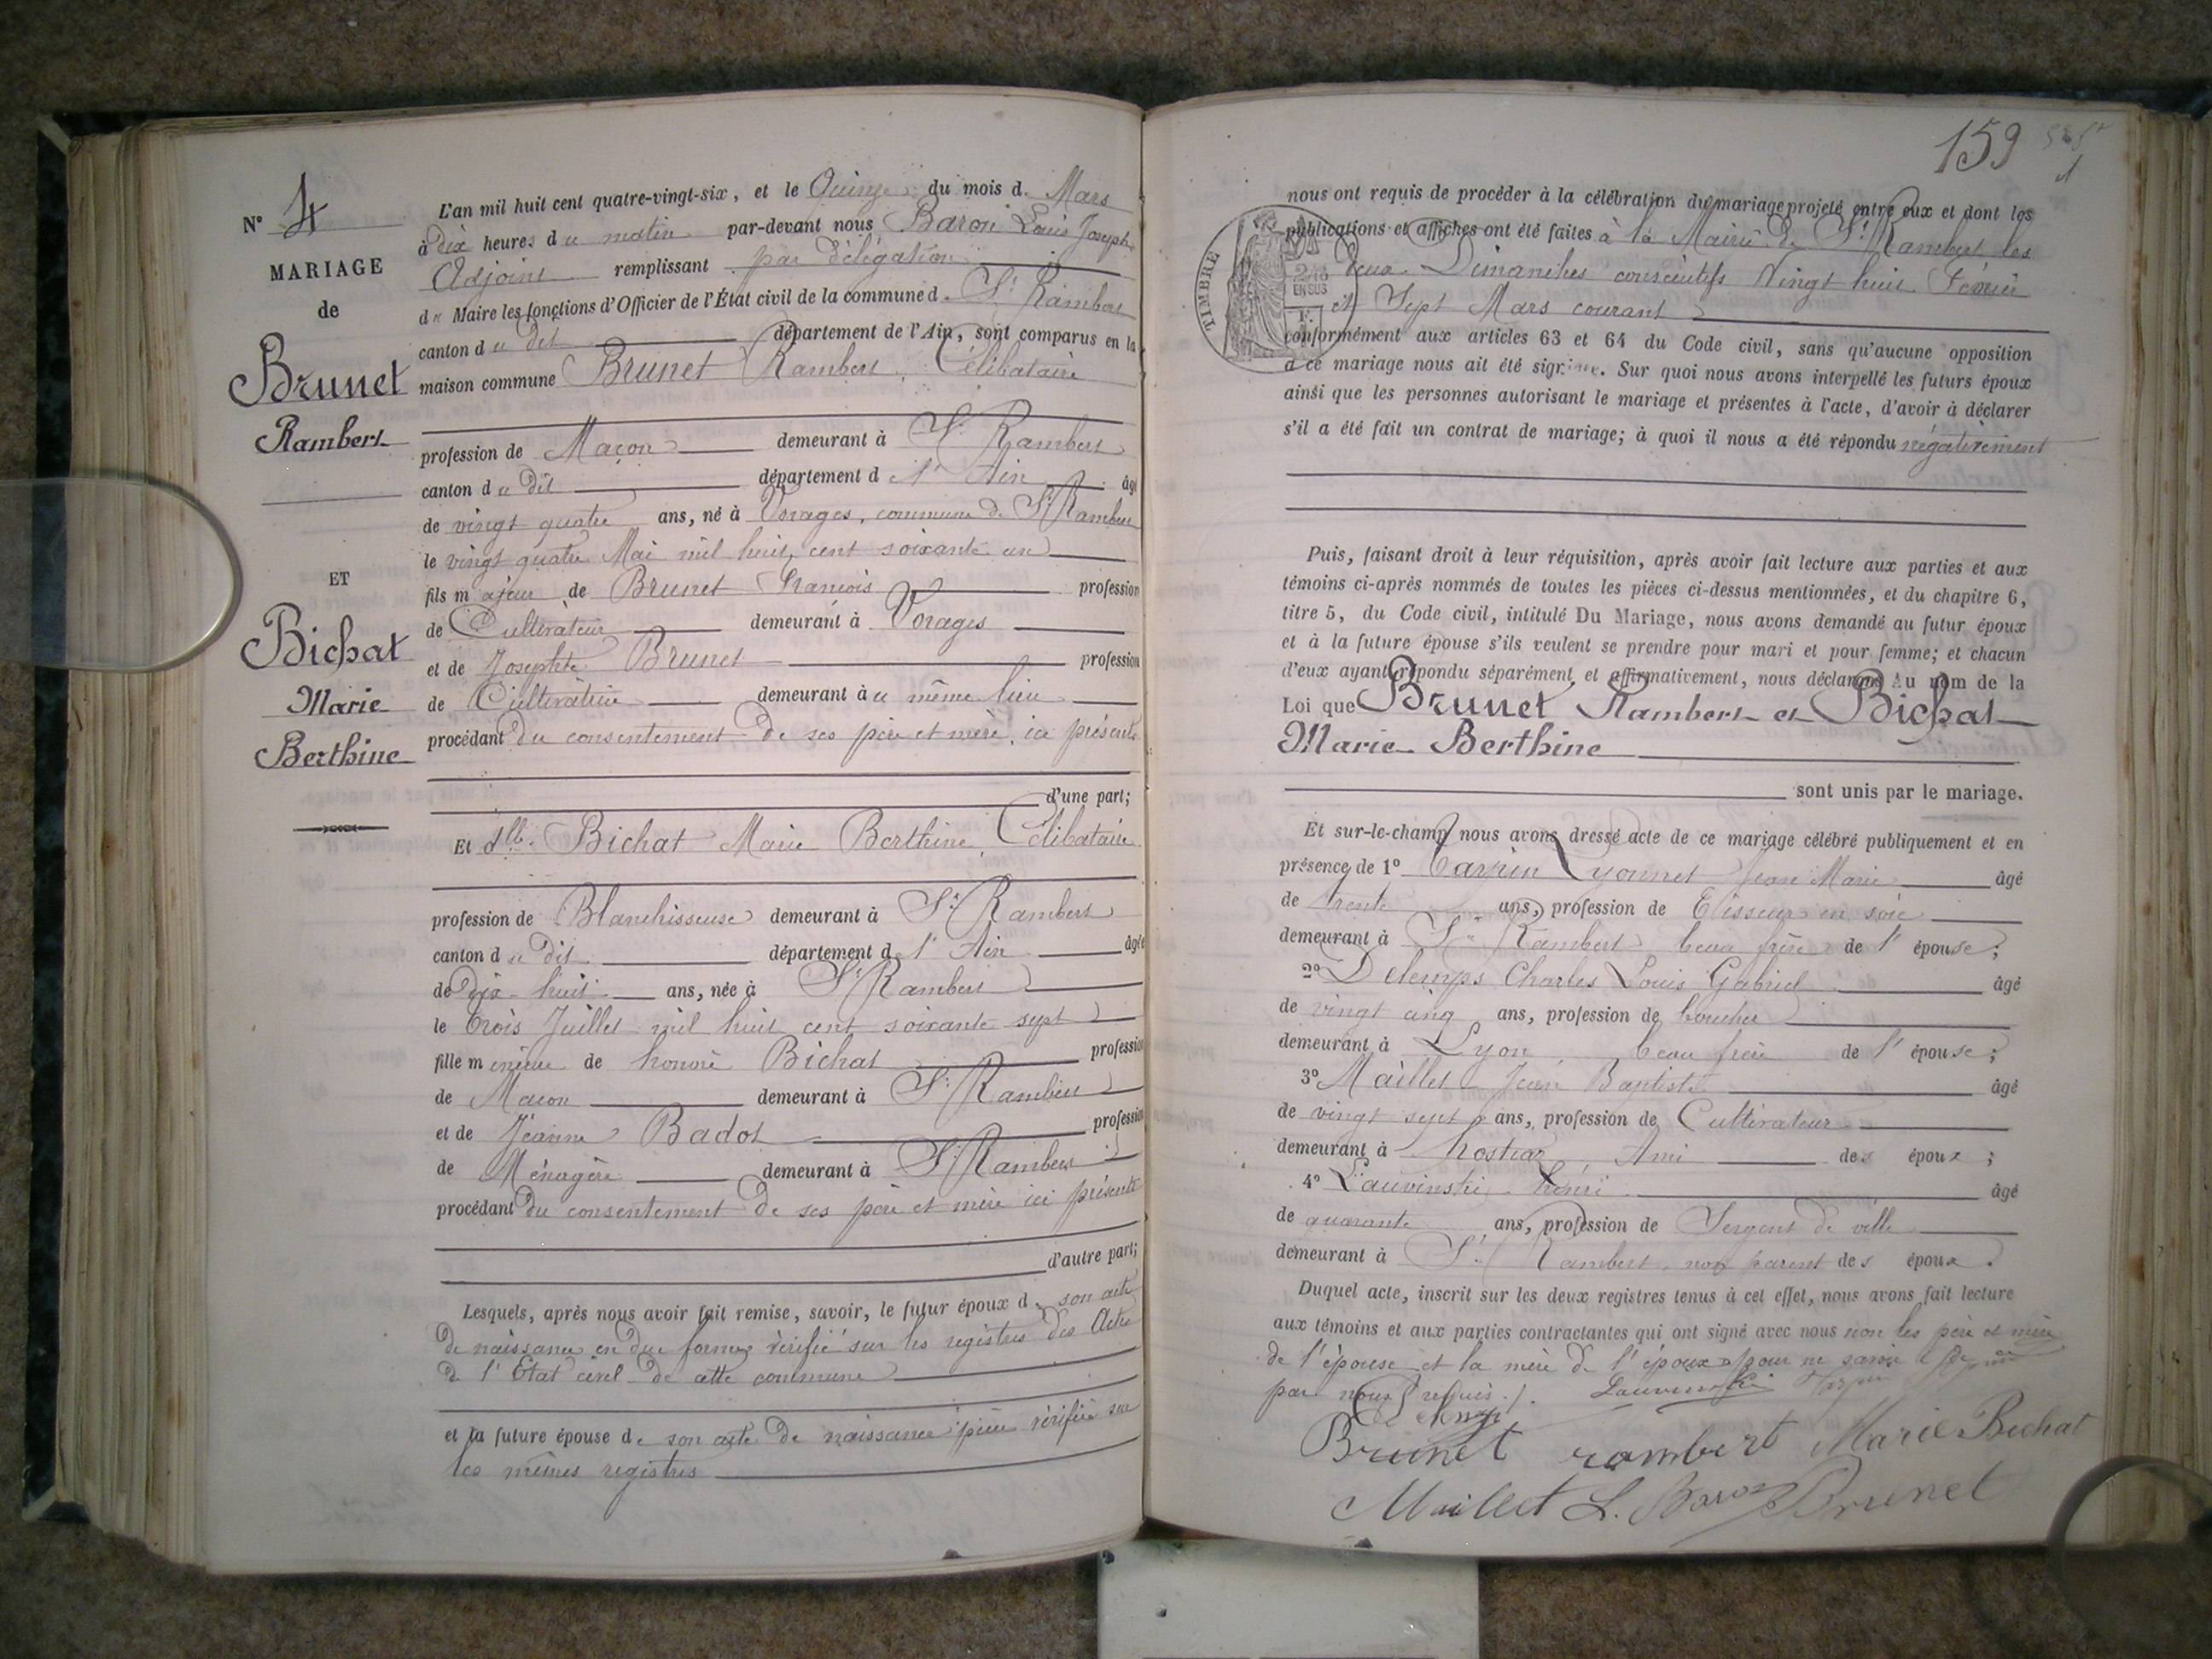 N° 4
MARIAGE
de
Brunet
Rambert
ET
Bichat
Marie
Berthine
L'an mil huit cent quatre-vingt-six, et le Quinze du mois d. Mars
à Dix heures du matin par-devant nous Baron Louis Joseph
Adjoint remplissant par délégation
du Maire les fonctions d'Officier de l'État civil de la commune d. St Rambert
canton du dit département de l'Ain, sont comparus en la
maison commune Brunet Rambert, Célibataire
profession de Maçon demeurant à St Rambert
canton du dit département d l'Ain âgé
de vingt quatre ans, né à Vorages, commune de St Rambert
le vingt quatre Mai mil huit cent soixante un
fils majeur de Brunet François profession
de Cultivateur demeurant à Vorages
et de Josephte Brunet profession
de Cultivatrice demeurant au même lieu
procédant du consentement de ses père et mère, ici présents
d'une part;
Et dlle. Bichat Marie Berthine, Célibataire
profession de Blanchisseuse demeurant à St Rambert
canton du dit département d l'Ain âgée
de dix-huit ans, née à St Rambert
le trois Juillet mil huit cent soixante sept
fille mineure de honoré Bichat profession
de Maçon demeurant à St Rambert
et de Jeanne Badot profession
de Ménagère demeurant à St Rambert
procédant du consentement de ses père et mère ici présents
d'autre part;
Lesquels, après nous avoir fait remise, savoir, le futur époux de son acte
de naissance en due forme vérifié sur les registres des Actes
de l'Etat civil de cette commune
et la future épouse de son acte de naissance pièce vérifiée sur
les mêmes registres
159
TIMBRE
2/10
EN SUS
nous ont requis de procéder à la célébration du mariage projeté entre eux et dont les
publications et affiches ont été faites à la Mairie de St Rambert les
deux Dimanches consécutifs Vingt huit Février
et Sept Mars courant
conformément aux articles 63 et 64 du Code civil, sans qu'aucune opposition
à ce mariage nous ait été signifiée. Sur quoi nous avons interpellé les futurs époux
ainsi que les personnes autorisant le mariage et présentes à l'acte, d'avoir à déclarer
s'il a été fait un contrat de mariage; à quoi il nous a été répondu négativement
Puis, faisant droit à leur réquisition, après avoir fait lecture aux parties et aux
témoins ci-après nommés de toutes les pièces ci-dessus mentionnées, et du chapitre 6,
titre 5, du Code civil, intitulé Du Mariage, nous avons demandé au futur époux
et à la future épouse s'ils veulent se prendre pour mari et pour femme; et chacun
d'eux ayant répondu séparément et affirmativement, nous déclarons Au nom de la
Loi que Brunet Rambert et Bichat
Marie Berthine
sont unis par le mariage.
Et sur-le-champ nous avons dressé acte de ce mariage célébré publiquement et en
présence de 1° Carpin Lyonnet Jean Marie âgé
de trente ans, profession de Tisseur en soie
demeurant à St Rambert beau frère de l'épouse;
2° Delemps Charles Louis Gabriel âgé
de vingt cinq ans, profession de boucher
demeurant à Lyon, beau frère de l'épouse;
3° Maillet Jean Baptiste âgé
de vingt sept ans, profession de Cultivateur
demeurant à hostiaz Ami des époux;
4° Lauvinski henri âgé
de quarante ans, profession de Sergent de ville
demeurant à St Rambert, non parent des époux.
Duquel acte, inscrit sur les deux registres tenus à cet effet, nous avons fait lecture
aux témoins et aux parties contractantes qui ont signé avec nous non les père et mère
de l'épouse et la mère de l'époux pour ne savoir le
par nous requis.
Brunet rambert Marie Bichat
Maillet L. Baron Brunet